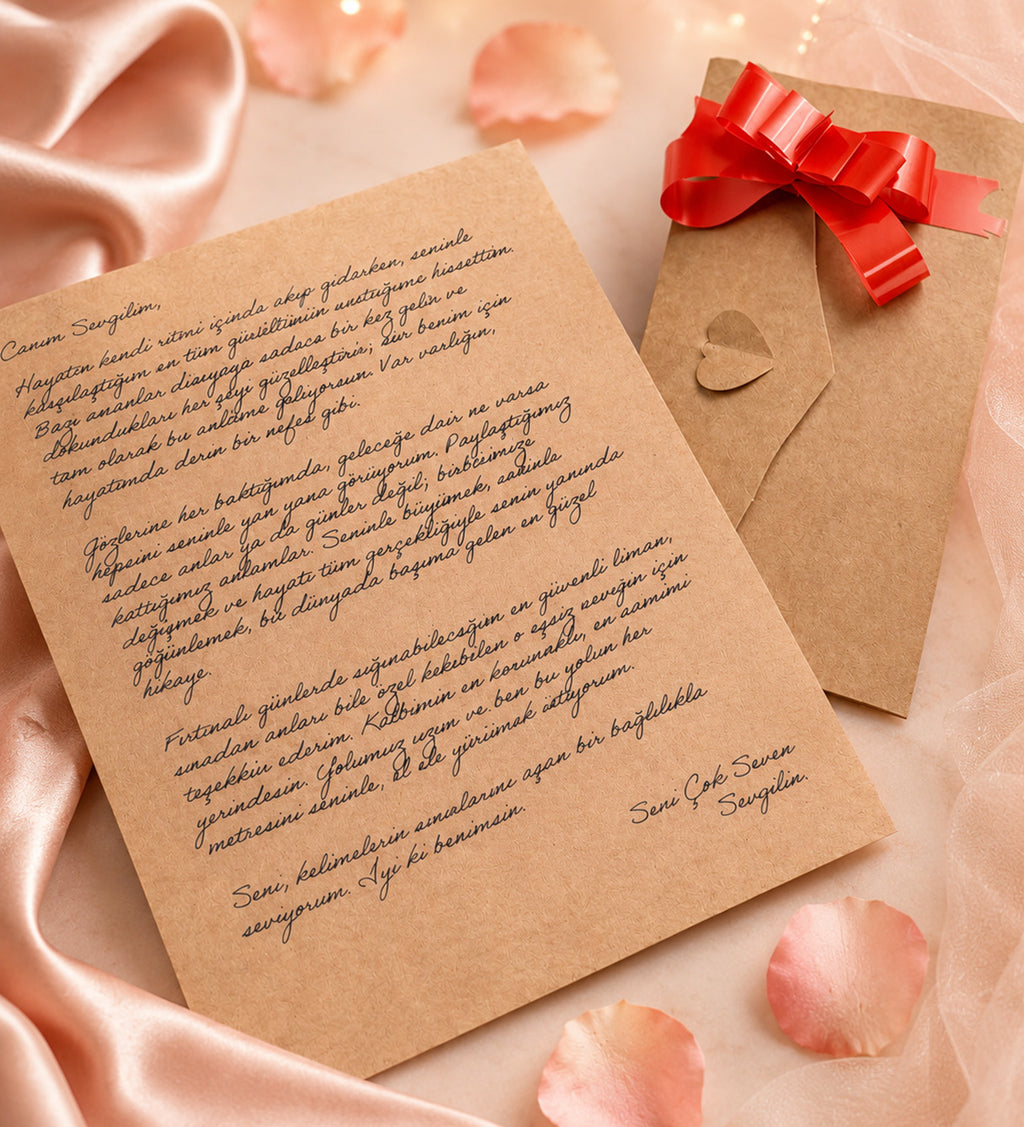 Canım Sevgilim,
Hayatın kendi ritmi içinda akıp gidarken, seninle
kasşılaştığım en tüm güsültünün unutuğume hissettim.
Bazı ananlar diaıyaya sadaca bir kez gelin ve
dokundukları her şeyi güzelleştirir; sur benim için
tam olarak bu anlama geliyorsun. Var varlığın,
hayatımda derin bir nefes gibi.
Gözlerine her baktığımda, geleceğe dair ne varsa
hepsini seninle yan yana görüyorum. Paylaştığımız
sadece anlar ya da günler değil; birbisimize
kattığımız anlamlar. Seninle büyümek, saninla
değişmek ve hayatı tüm gerçekliğiyle senin yanında
göğünlemek, bu dünyada başıma gelen en güzel
hikaye.
Fırtınalı günlerde sığınabilecsğim en güvenli liman,
sınadan anları bile özel kekıbilen o eşsiz peveğin için
teşekkür ederim. Kalbimin en korunaklı, en aamimi
yerindesin. Yolumuz uzum ve ben bu yolun her
metresini seninle, el ele yürümak istiyorum.
Seni, kelimelerin sınıalarını aşan bir bağlılıkla
seviyorum. İyi ki benimsin.
Seni Çok Seven
Sevgilin.